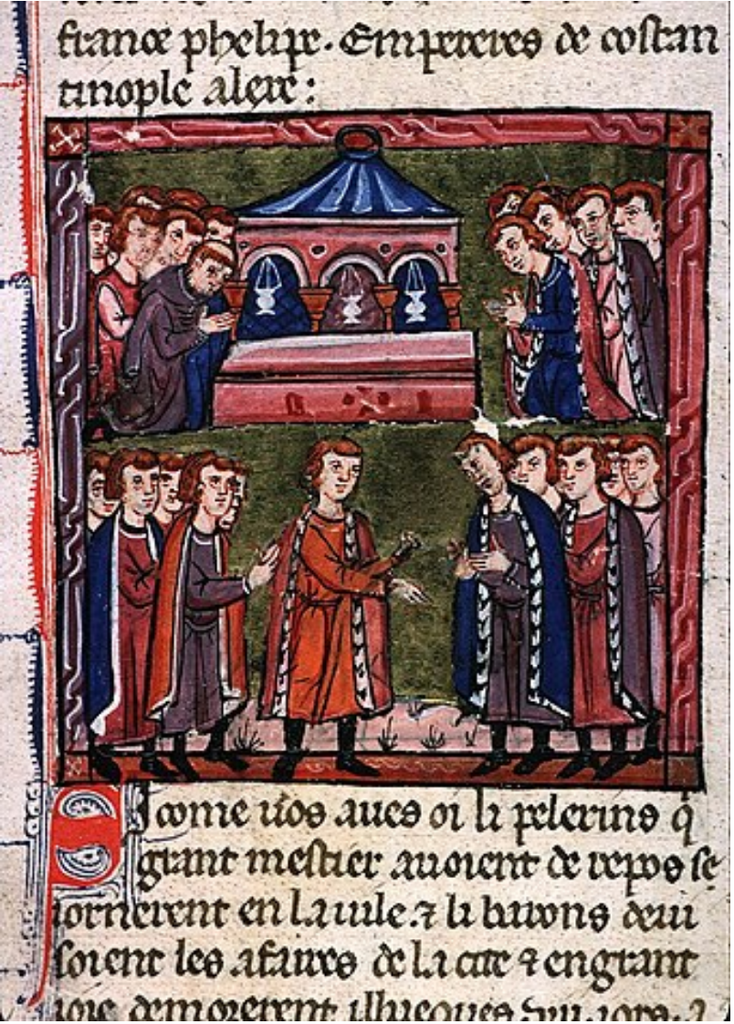 france phelipe. Empereres de costan
tinople alexe:
Si come uos aues oi li pelerins q̃
grant mestier auoient de repos se
iornerent en la uile. ⁊ li barons deui
soient les afaires de la cite ⁊ en grant
ioie demorerent illueques